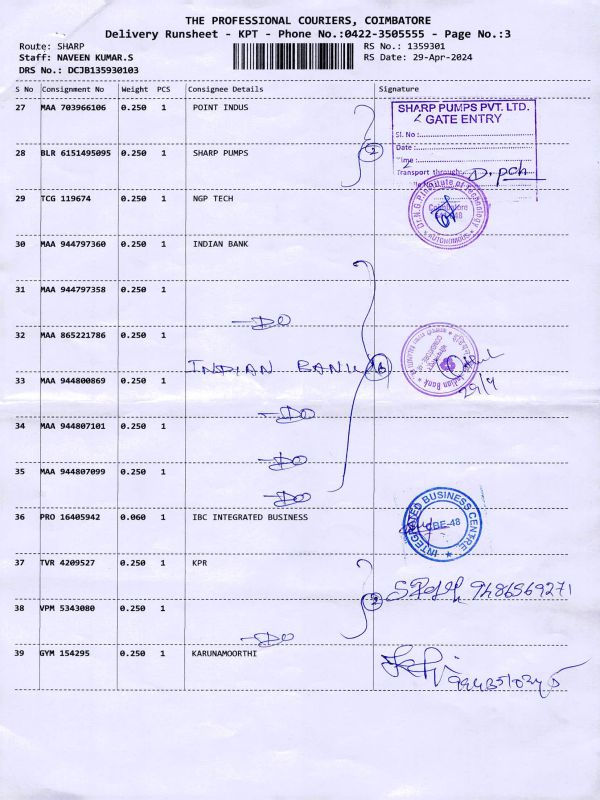 THE PROFESSIONAL COURIERS, COIMBATORE
Delivery Runsheet - KPT - Phone No.:0422-3505555 - Page No.:3
Route: SHARP
RS No.: 1359301
Staff: NAVEEN KUMAR.S
RS Date: 29-Apr-2024
DRS No.: DCJB135930103
S No Consignment No Weight PCS Consignee Details Signature
27 MAA 703966106 0.250 1 POINT INDUS
SHARP PUMPS PVT. LTD.
GATE ENTRY
Sl. No :
Date :
Time :
Transport through:
28 BLR 6151495095 0.250 1 SHARP PUMPS
2
29 TCG 119674 0.250 1 NGP TECH
Dr. N.G.P. Institute of Technology
Coimbatore
AUTONOMOUS
30 MAA 944797360 0.250 1 INDIAN BANK
31 MAA 944797358 0.250 1
-DO
32 MAA 865221786 0.250 1
INDIAN BANK 6
Indian Bank
29/4
33 MAA 944800869 0.250 1
-DO
34 MAA 944807101 0.250 1
-DO
35 MAA 944807099 0.250 1
-DO
36 PRO 16405942 0.060 1 IBC INTEGRATED BUSINESS
INTEGRATED BUSINESS CENTRE
CBE-48
37 TVR 4209527 0.250 1 KPR
9486569271
38 VPM 5343080 0.250 1
2
-DO
39 GYM 154295 0.250 1 KARUNAMOORTHI